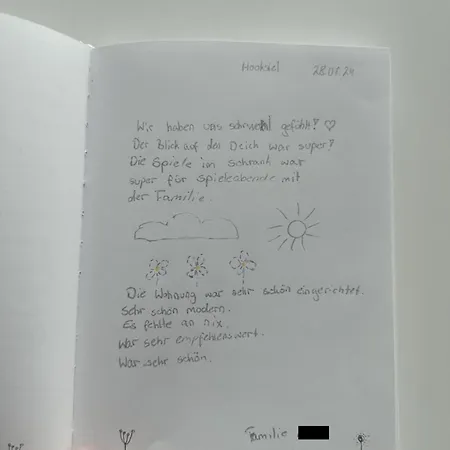 Hooksiel 28.07.24
Wir haben uns sehr wohl gefühlt! ♡
Der Blick auf das Deich war super!
Die Spiele im schrank war
super für spieleabende mit
der Familie.
Die Wohnung war sehr schön eingerichtet.
Sehr schön modern.
Es fehlte an nix.
War sehr empfehlenswert.
War sehr schön.
Familie